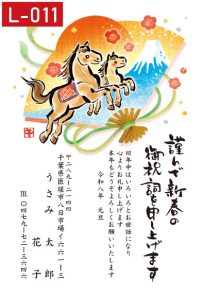 L-011
謹んで新春の
御祝詞を申し上げます
旧年中はいろいろとお世話になり
心よりお礼申し上げます
本年もどうぞよろしくお願いいたします
令和八年 元旦
〒二八九-二一四四
千葉県匝瑳市八日市場イ六六一-三
うさみ 太郎
花子
℡ 〇四七九-七二-三六四六